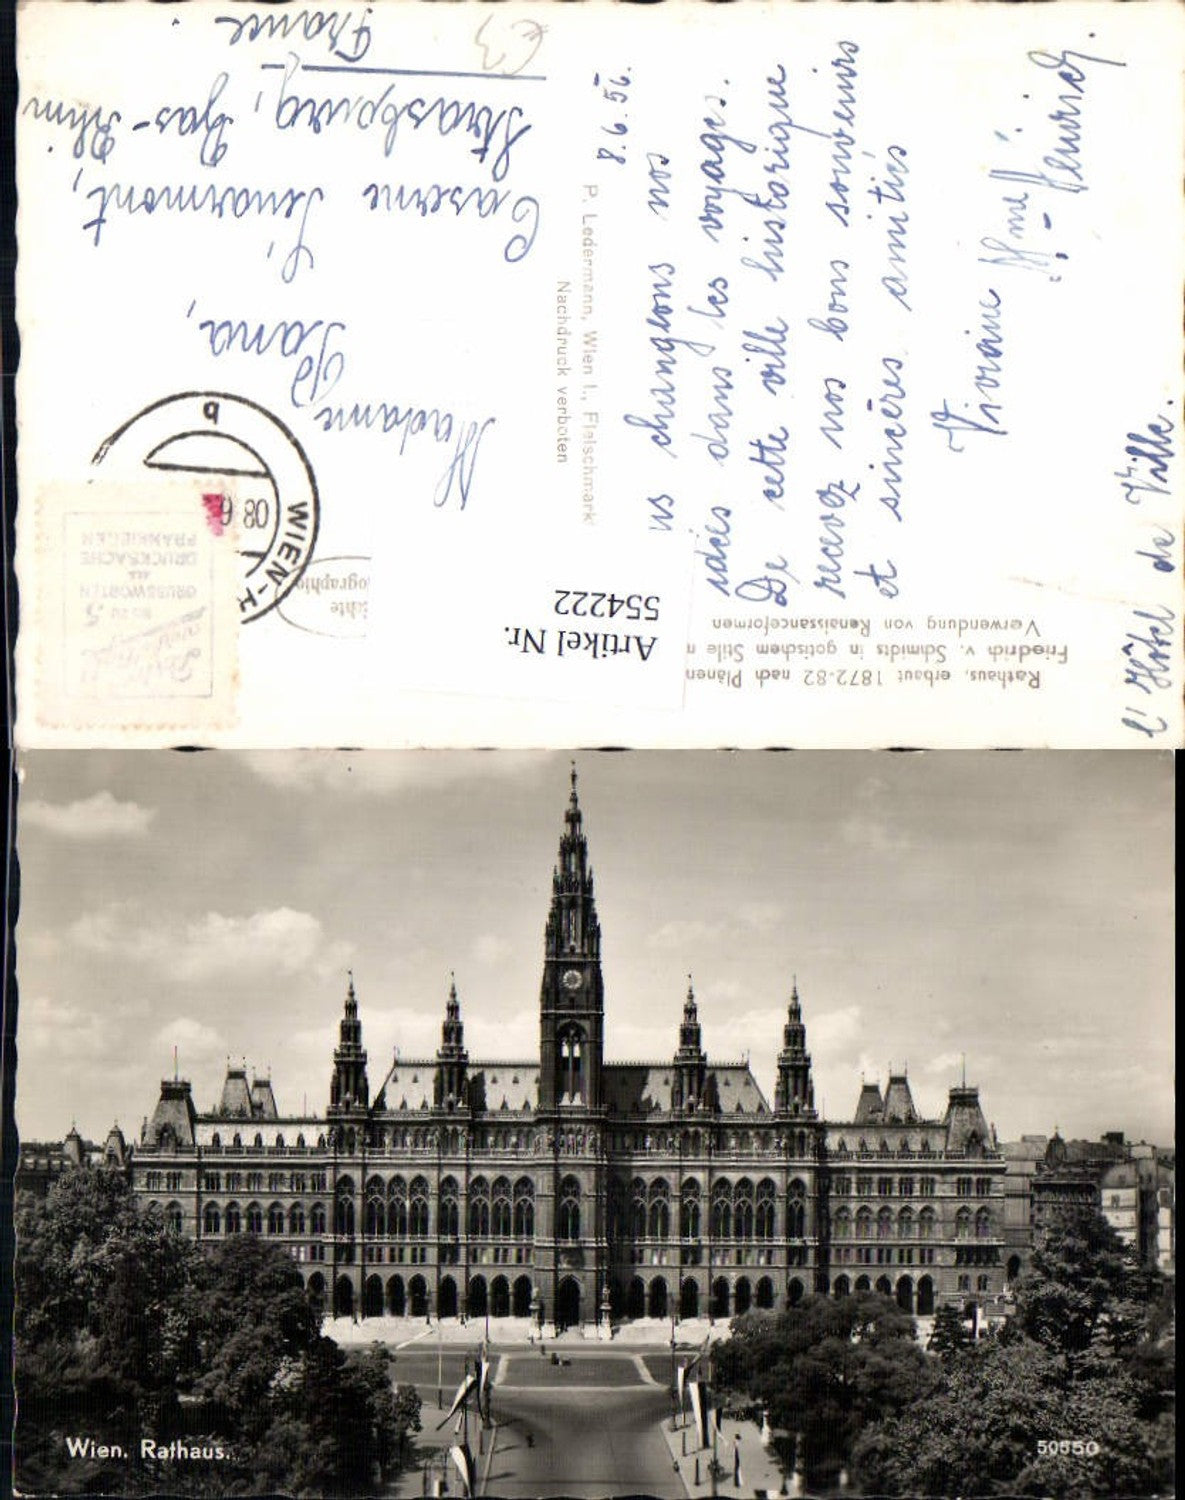 8.6.56.
us changeons nos
idées dans les voyages.
De cette ville historique
recevez nos bons souvenirs
et sincères amitiés
Viviane
Henrich.
l'Hôtel de Ville.
Madame
Caserne Sénarmont,
Strasbourg, Bas-Rhin
France.
€3
P. Ledermann, Wien I., Fleischmark
Nachdruck verboten
Rathaus, erbaut 1872-82 nach Plänen
Friedrich v. Schmidts in gotischem Stile
Verwendung von Renaissanceformen
Artikel Nr.
554222
chte
ographie
WIEN
08 6
b
5
GRUSSWORTEN
ALS
DRUCKSACHE
FRANKIEREN
Wien. Rathaus.
50550